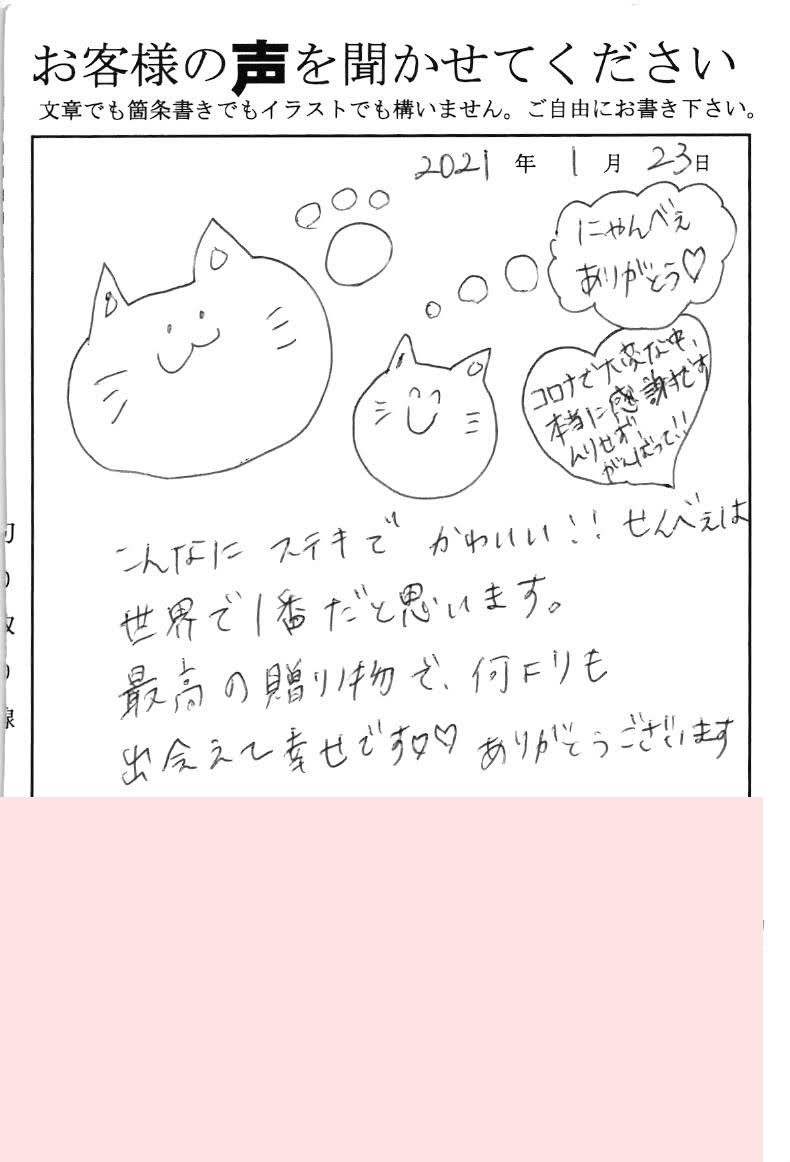 お客様の声を聞かせてください
文章でも箇条書きでもイラストでも構いません。ご自由にお書き下さい。
2021年 1月 23日
にゃんべぇ
ありがとう♡
コロナで大変な中、
本当に感謝です
ムリせず、
がんばって!!
こんなに ステキで かわいい!! せんべぇは
世界で1番だと思います。
最高の贈り物で、何よりも
出会えて幸せです♡♡ ありがとうございます